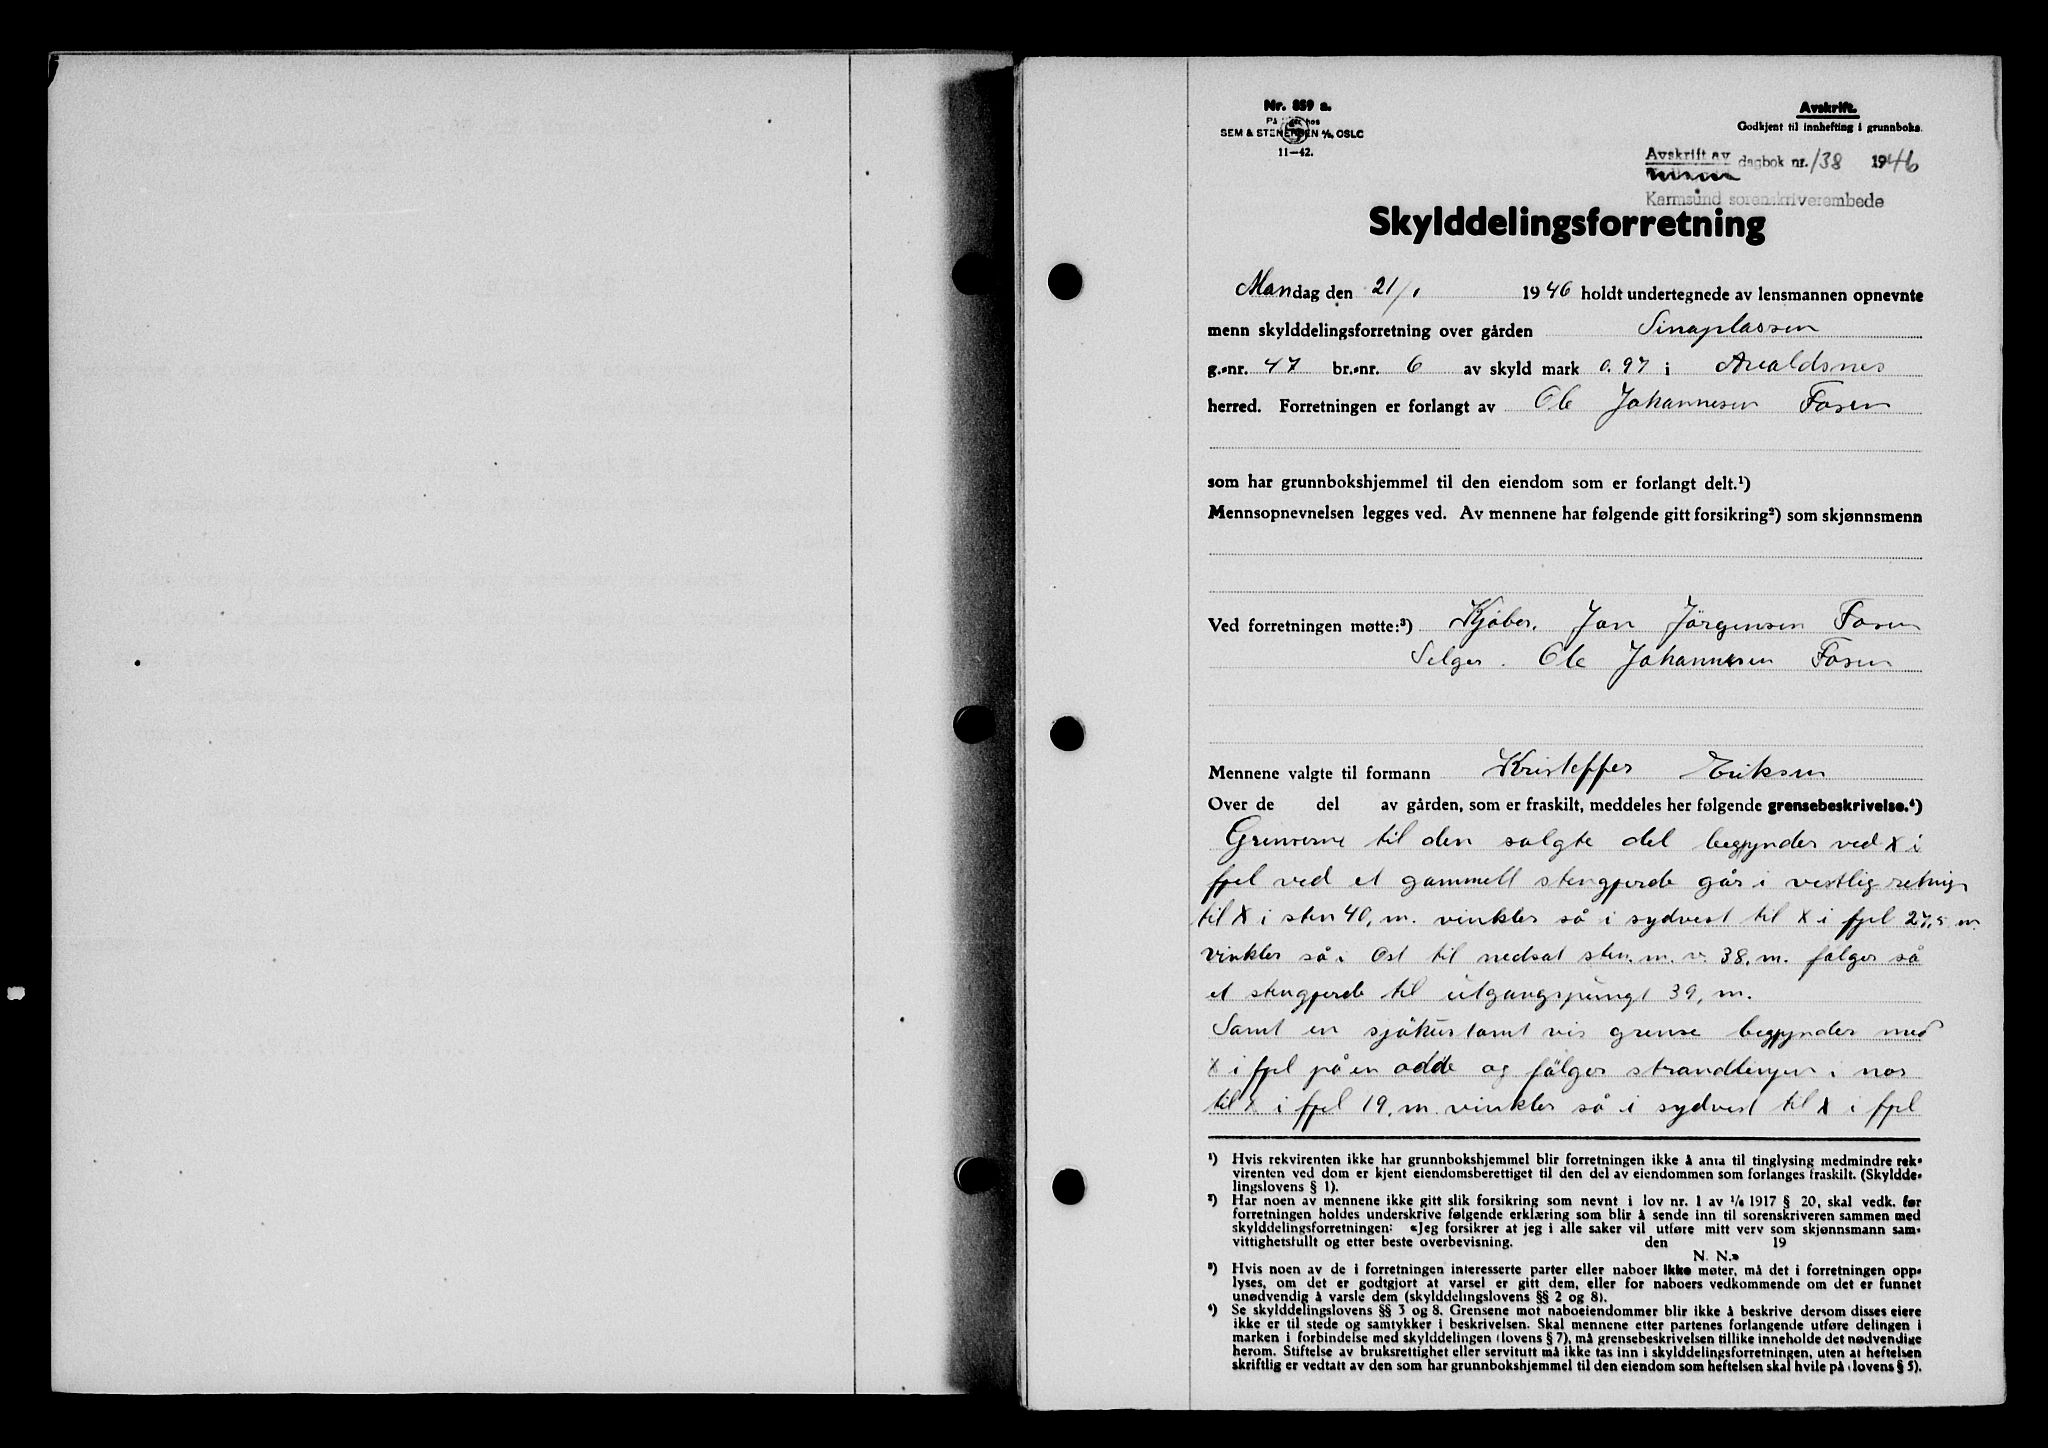 Nr. 859 a.
På lager hos
SEM & STENERSEN A/S, OSLO
11—42.
Avskrift.
Godkjent til innhefting i grunnboka.
Avskrift av dagbok nr. 138 1946
Karmsund sorenskriverembede
Skylddelingsforretning
Mandag den 21/1 1946 holdt undertegnede av lensmannen opnevnte
menn skylddelingsforretning over gården Sinaplassen
g.-nr. 47 br.-nr. 6 av skyld mark 0.97 i Avaldsnes
herred. Forretningen er forlangt av Ole Johannesen Fosen
som har grunnbokshjemmel til den eiendom som er forlangt delt.¹)
Mennsopnevnelsen legges ved. Av mennene har følgende gitt forsikring²) som skjønnsmenn
Ved forretningen møtte:³) Kjøber. Jan Jörgensen Fosen
Selger. Ole Johannesen Fosen
Mennene valgte til formann Kristoffer Eriksen
Over de del av gården, som er fraskilt, meddeles her følgende grensebeskrivelse.⁴)
Grenserne til den solgte del begynder ved X i
fjel ved et gammelt stengjerde går i vestlig retning
til X i sten 40, m. vinkler så i sydvest til X i fjel 27,5 m.
vinkler så i Ost til nedsat sten. m. v. 38. m. følger så
et stengjerde til utgangspungt 39, m.
Samt en sjøkustomt vis grense begynder med
X i fjel på en odde og fölger strandlinjen i nor
til X i fjel 19. m. vinkler så i sydvest til X i fjel
¹) Hvis rekvirenten ikke har grunnbokshjemmel blir forretningen ikke å anta til tinglysing medmindre rek-
virenten ved dom er kjent eiendomsberettiget til den del av eiendommen som forlanges fraskilt. (Skyldde-
lingslovens § 1).
²) Har noen av mennene ikke gitt slik forsikring som nevnt i lov nr. 1 av 1/6 1917 § 20, skal vedk. før
forretningen holdes underskrive følgende erklæring som blir å sende inn til sorenskriveren sammen med
skylddelingsforretningen: «Jeg forsikrer at jeg i alle saker vil utføre mitt verv som skjønnsmann sam-
vittighetsfullt og etter beste overbevisning. den 19
N. N.»
³) Hvis noen av de i forretningen interesserte parter eller naboer ikke møter, må det i forretningen opp-
lyses, om det er godtgjort at varsel er gitt dem, eller for naboers vedkommende om det er funnet
unødvendig å varsle dem (skylddelingslovens §§ 2 og 8).
⁴) Se skylddelingslovens §§ 3 og 8. Grensene mot naboeiendommer blir ikke å beskrive dersom disses eiere
ikke er til stede og samtykker i beskrivelsen. Skal mennene etter partenes forlangende utføre delingen i
marken i forbindelse med skylddelingen (lovens § 7), må grensebeskrivelsen tillike inneholde det nødvendige
herom. Stiftelse av bruksrettighet eller servitutt må ikke tas inn i skylddelingsforretningen, uten at heftelsen
skriftlig er vedtatt av den som har grunnbokshjemmel til den eiendom som heftelsen skal hvile på (lovens § 5).